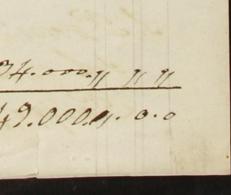 34.000.〃 〃 〃
49.000〃. 0.0